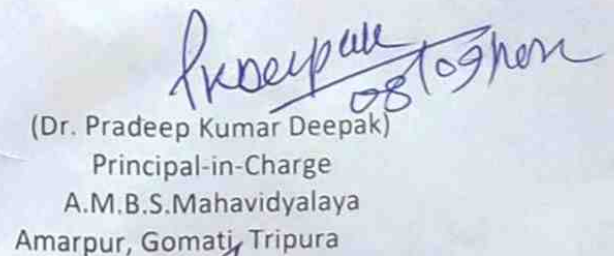 PKDeepak
08/09/
(Dr. Pradeep Kumar Deepak)
Principal-in-Charge
A.M.B.S.Mahavidyalaya
Amarpur, Gomati, Tripura